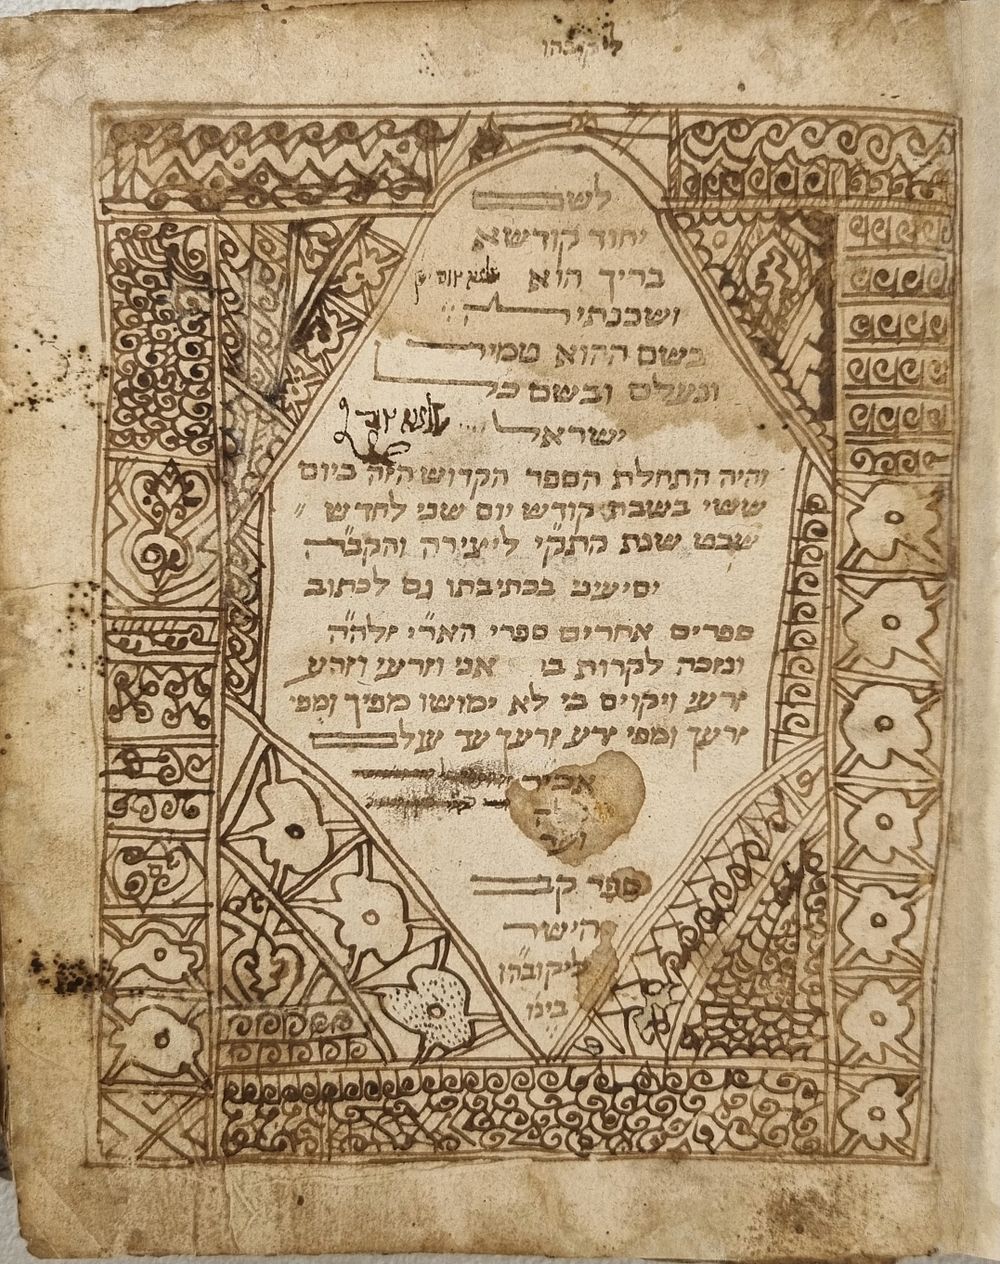 ליקובהו
לשם
יחוד קודשא
בריך הוא
ושכנתיה
בשם ההוא טמיר
ונעלם ובשם כל
ישראל
והיה התחלת הספר הקדוש הזה ביום
ששי בשבת קודש יום שני לחדש
שבט שנת ליצירה והקב״ה
יסיעני בכתיבתו גם לכתוב
ספרים אחרים ספרי האר״י זלה״ה
ונזכה לקרות בו אני וזרעי וזרע
זרעי ויקוים בי לא ימושו מפיך ומפי
זרעך ומפי זרע זרעך עד עולם
אכי״ר
ספר קב
הישר
ליקובה״ו